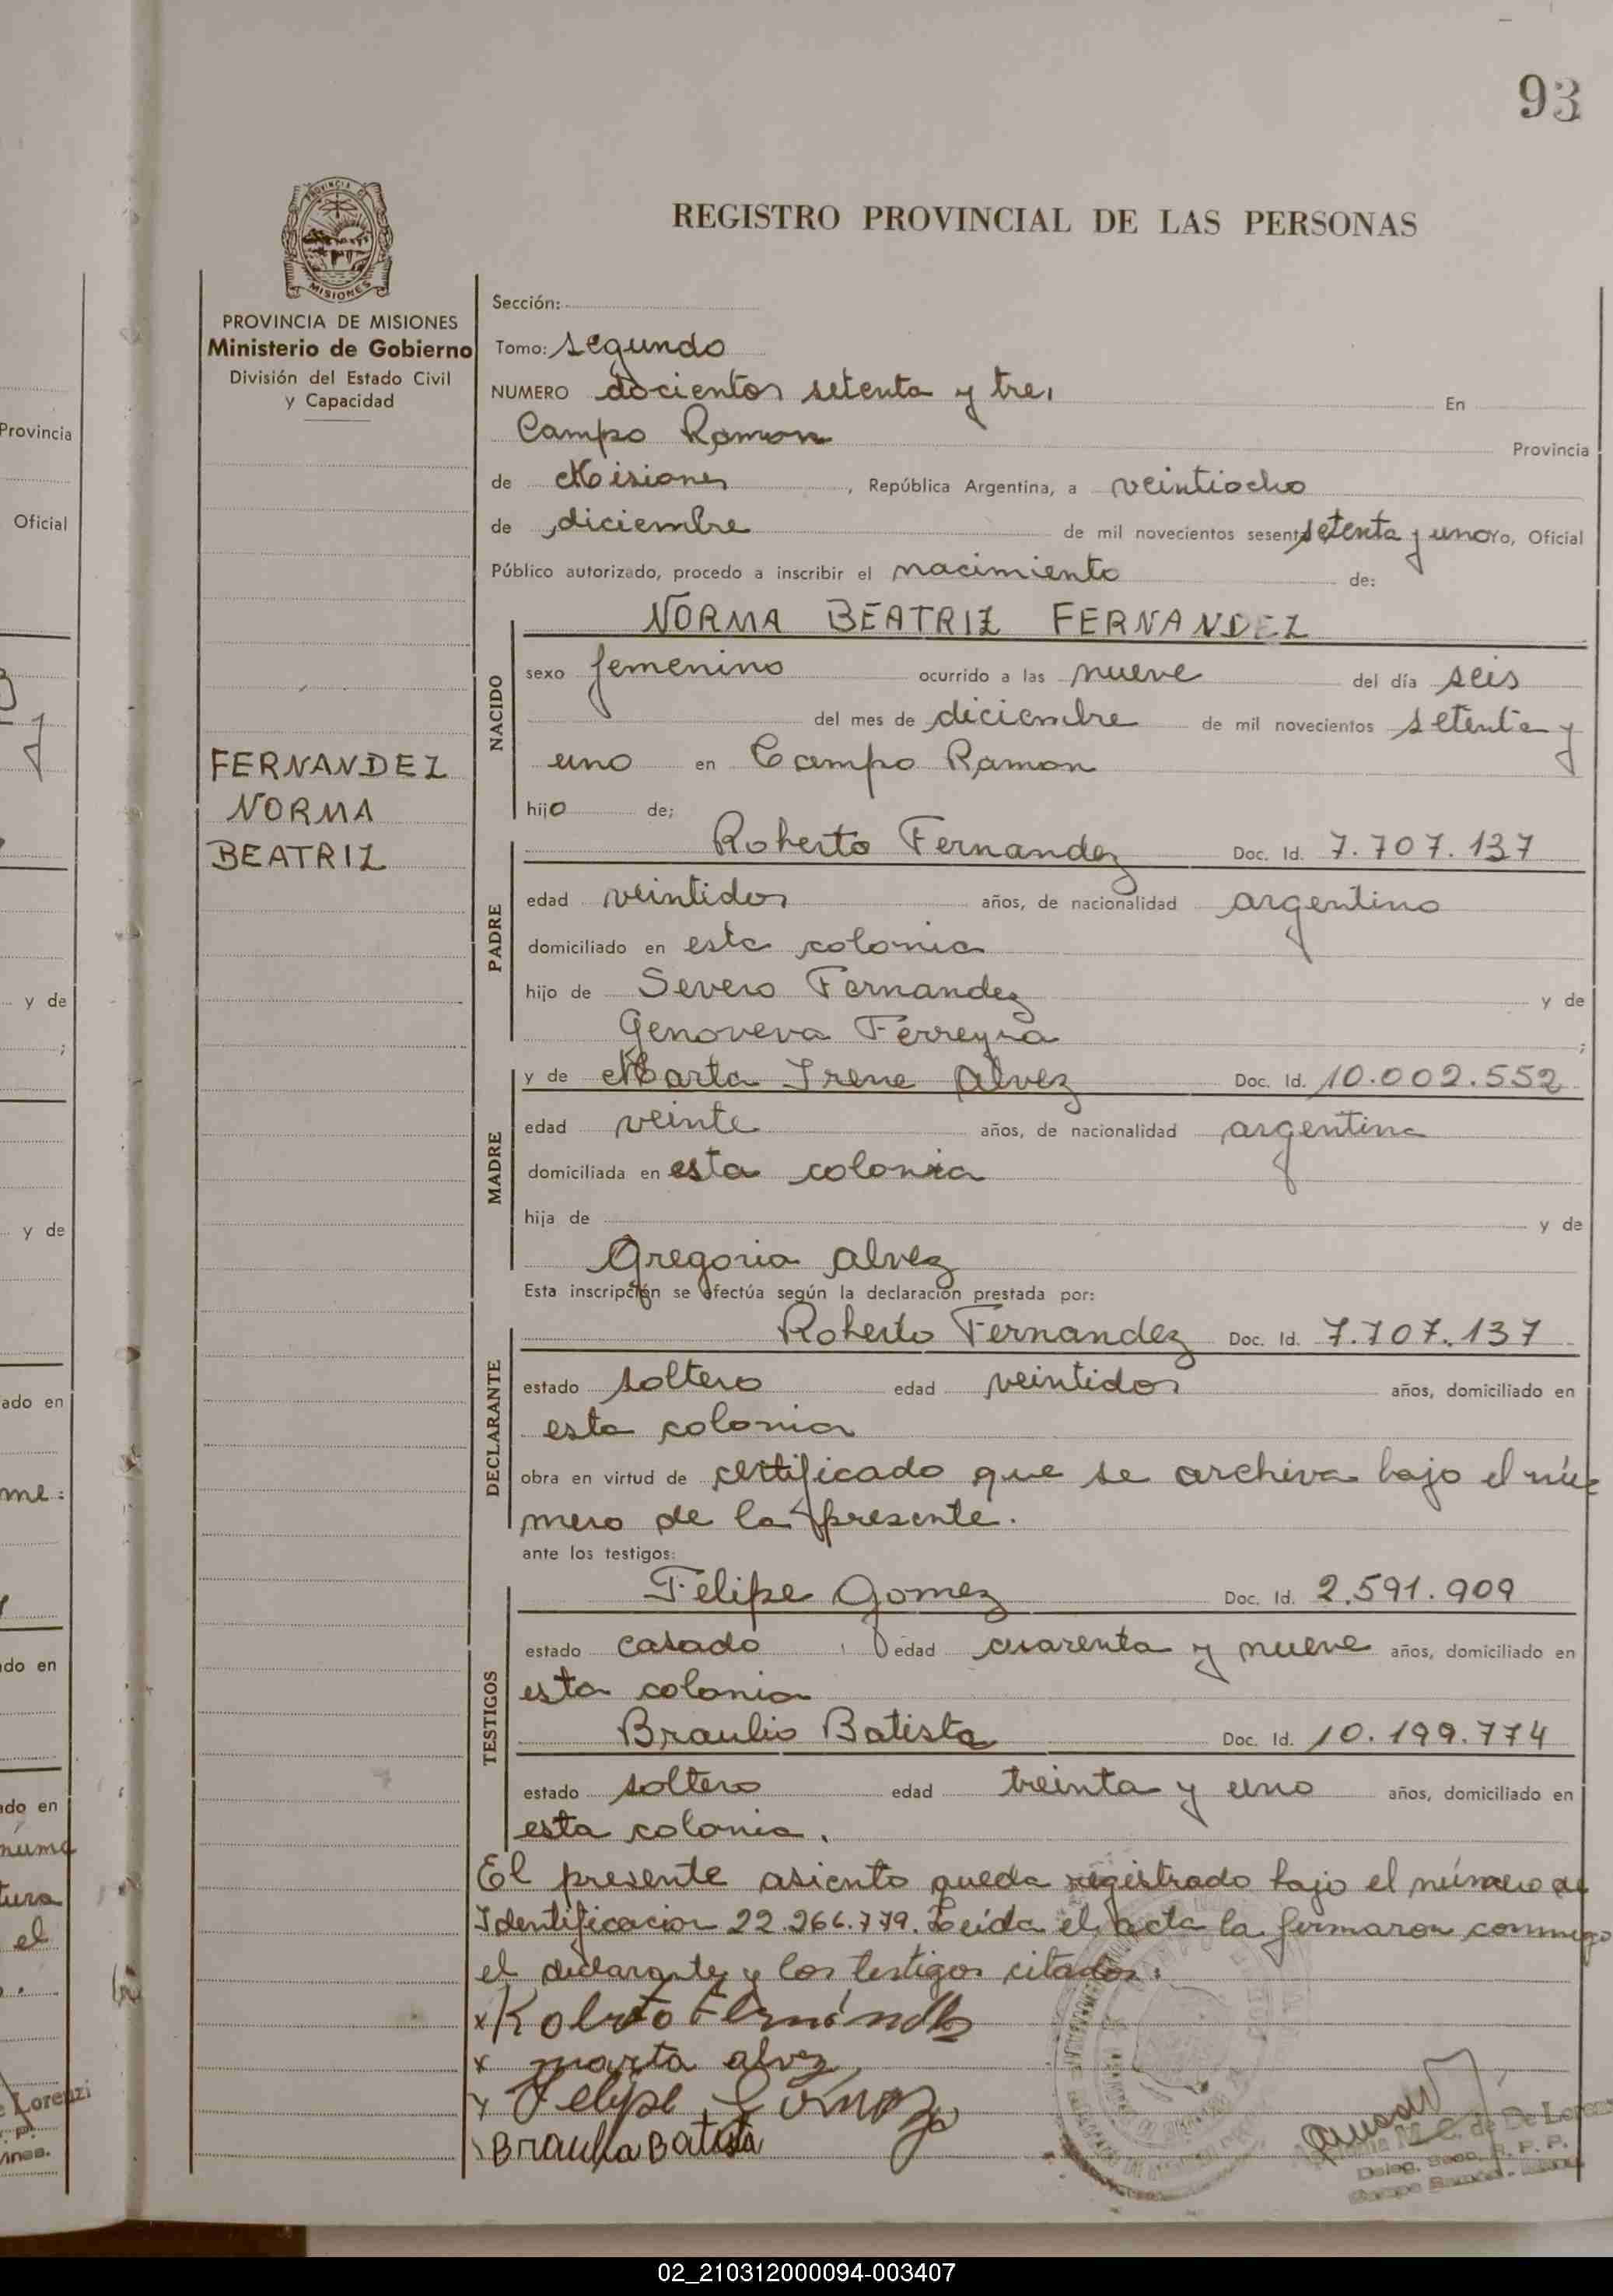 93
REGISTRO PROVINCIAL DE LAS PERSONAS
PROVINCIA DE MISIONES
PROVINCIA DE MISIONES
Ministerio de Gobierno
División del Estado Civil
y Capacidad
FERNANDEZ
NORMA
BEATRIZ
Sección:
Tomo: segundo
NUMERO docientos setenta y tres En
Campo Ramon Provincia
de Misiones, República Argentina, a veintiocho
de diciembre de mil novecientos sesenta setenta y uno yo, Oficial
Público autorizado, procedo a inscribir el nacimiento de:
NORMA BEATRIZ FERNANDEZ
NACIDO
sexo femenino ocurrido a las nueve del día seis
del mes de diciembre de mil novecientos setenta y
uno en Campo Ramon
hijo de;
Roberto Fernandez Doc. Id. 7.707.137
PADRE
edad veintidos años, de nacionalidad argentino
domiciliado en esta colonia
hijo de Severo Fernandez y de
Genoveva Ferreyra;
y de Marta Irene Alvez Doc. Id. 10.002.552
MADRE
edad veinte años, de nacionalidad argentina
domiciliada en esta colonia
hija de y de
Gregoria Alvez
Esta inscripción se efectúa según la declaración prestada por:
Roberto Fernandez Doc. Id. 7.707.137
DECLARANTE
estado soltero edad veintidos años, domiciliado en
esta colonia
obra en virtud de certificado que se archiva bajo el nú
mero de la presente.
ante los testigos:
Felipe Gomez Doc. Id. 2.591.909
TESTIGOS
estado casado edad cuarenta y nueve años, domiciliado en
esta colonia
Braulio Batista Doc. Id. 10.199.774
estado soltero edad treinta y uno años, domiciliado en
esta colonia.
El presente asiento queda registrado bajo el número de
Identificacion 22.266.779. Leida el acta la firmaron conmigo
el declarante y los testigos citados.
x Roberto Fernández
x marta alvez
x Felipe Gómez
Braulio Batista
M. C. de De Lorenzi
Deleg. Secc. R. P. P.
Campo Ramón
Provincia
Oficial
y de
;
y de
ado en
me:
do en
do en
núme
tura
el
Lorenzi
02_210312000094-003407